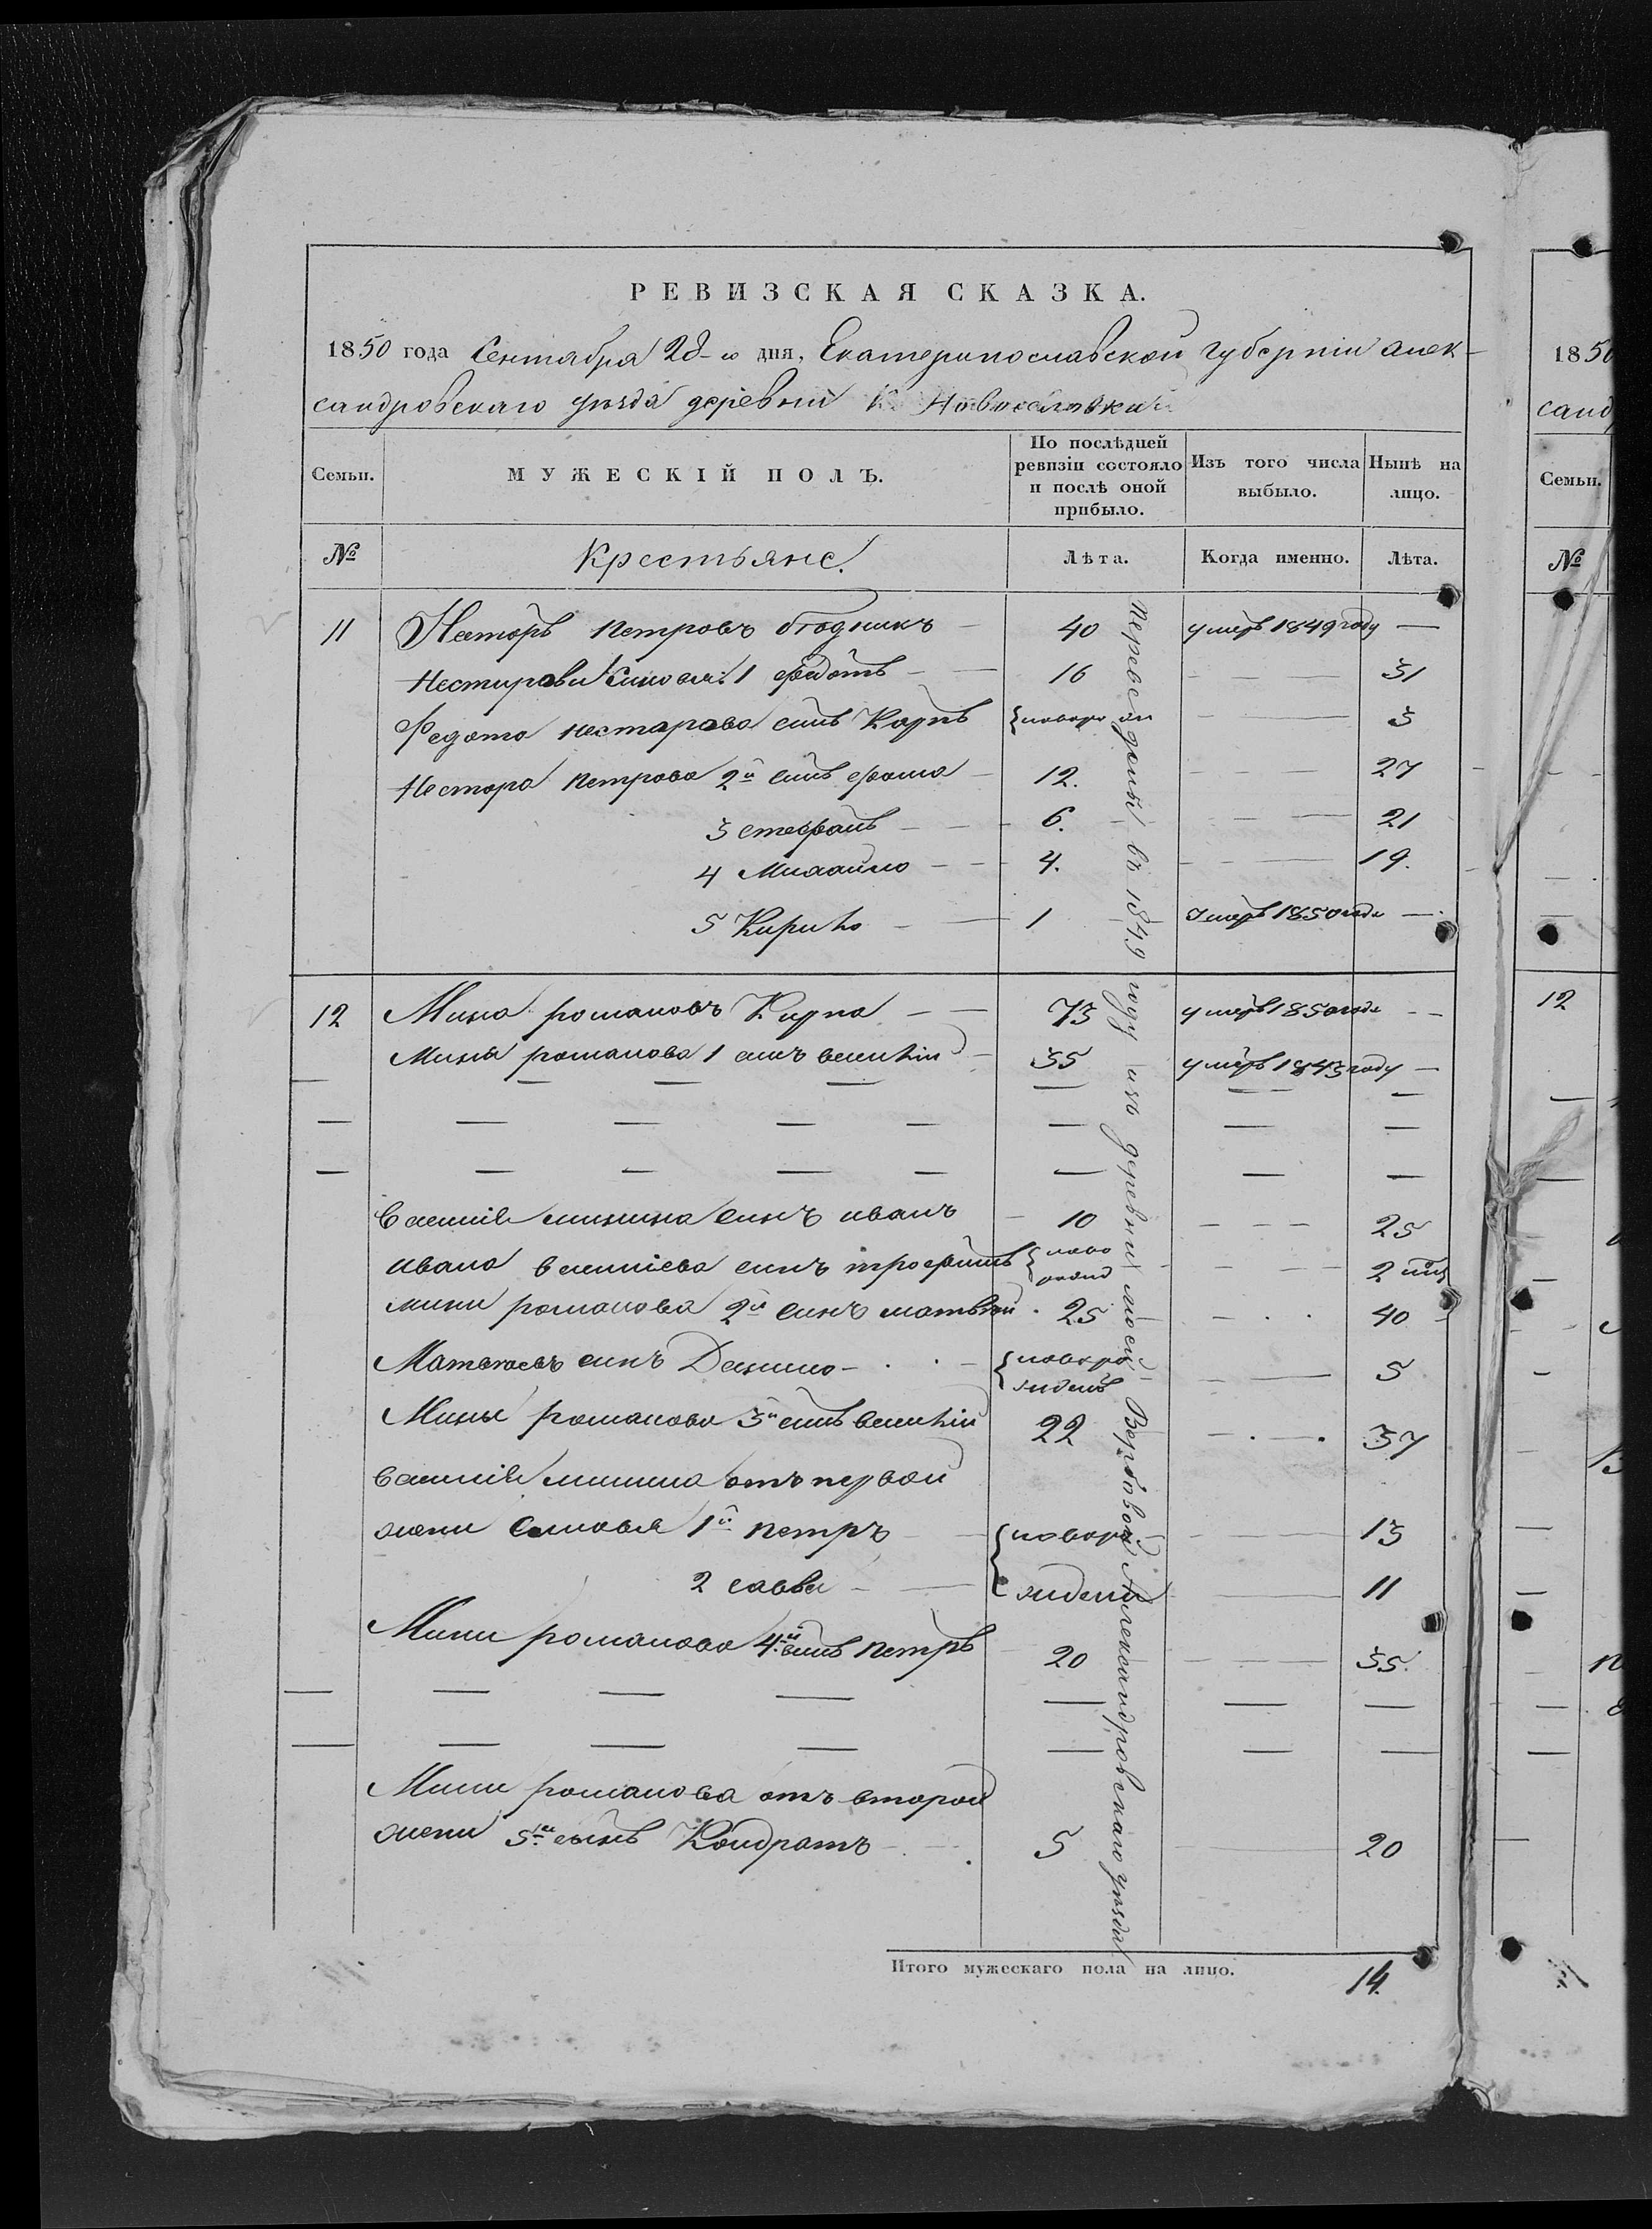 РЕВИЗСКАЯ СКАЗКА.
1850 года Сентября 28-го дня, Екатеринославской губерніи алек-
сандровскаго уѣзда деревни Новоселовки
Семьи. МУЖЕСКІЙ ПОЛЪ. По послѣдней ревизіи состояло и послѣ оной прибыло. Изъ того числа выбыло. Нынѣ на лицо.
№ Крестьяне. Лѣта. Когда именно. Лѣта.
11 Несторъ Петровъ 40 умеръ 1849 году —
Нестировы Синовя: 1 Федотъ — 16 — 31
Федота нестарова синъ Карпъ новоро 3
Нестора Петрова 2й синъ Фома — 12. — 27
3 стефанъ — 6. — 21
4 Михайло — 4. — 19.
5 Кирило — 1 Умеръ 1850 года —
12 Мина романовъ Кирпа — 73 умеръ 1850 года —
Мины романова 1 синъ василій — 35 умеръ 1843 году —
василія минина синъ иванъ — 10 — 25
ивана василіева синъ трофимъ ново рожд — 2 мѣ
мини романова 2й синъ матвѣй . 25 — 40
Матвѣевъ синъ Данило — новоро жденъ — 5
Мины романова 3й синъ василій 22 — 37
василія минина отъ первой
жени синовья 1й петръ — новоро — 13
2 савва — жден — 11
Мини романова 4й синъ петръ 20 — 35.
Мини романова отъ второй
жени 5й сынъ Кондратъ — 5 — 20
Переведены въ 1849 году изъ деревни моей Вербовой Александровскаго уѣзда
Итого мужескаго пола на лицо. 14.
1850
санд
Семьи.
№
12